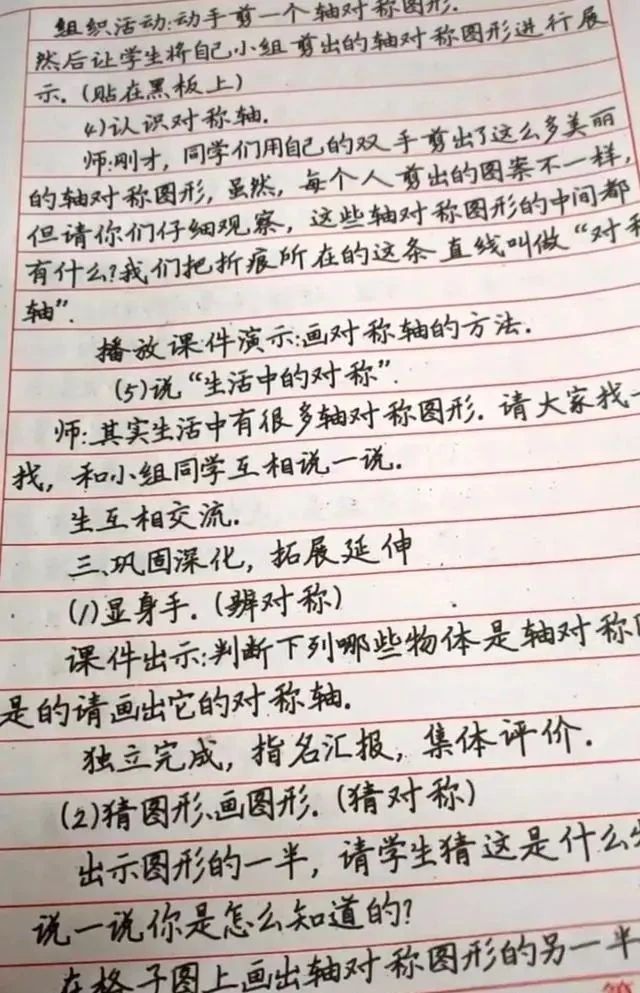 组织活动:动手剪一个轴对称图形.
然后让学生将自己小组剪出的轴对称图形进行展
示.(贴在黑板上)
4)认识对称轴.
师:刚才,同学们用自己的双手剪出了这么多美丽
的轴对称图形,虽然,每个人剪出的图案不一样,
但请你们仔细观察,这些轴对称图形的中间都
有什么?我们把折痕所在的这条直线叫做“对称
轴”.
播放课件演示:画对称轴的方法.
(5)说“生活中的对称”.
师:其实生活中有很多轴对称图形.请大家找一
找,和小组同学互相说一说.
生互相交流.
三、巩固深化,拓展延伸
(1)显身手.(辨对称)
课件出示:判断下列哪些物体是轴对称
是的请画出它的对称轴.
独立完成,指名汇报,集体评价.
(2)猜图形、画图形.(猜对称)
出示图形的一半,请学生猜这是什么
说一说你是怎么知道的?
在格子图上画出轴对称图形的另一半